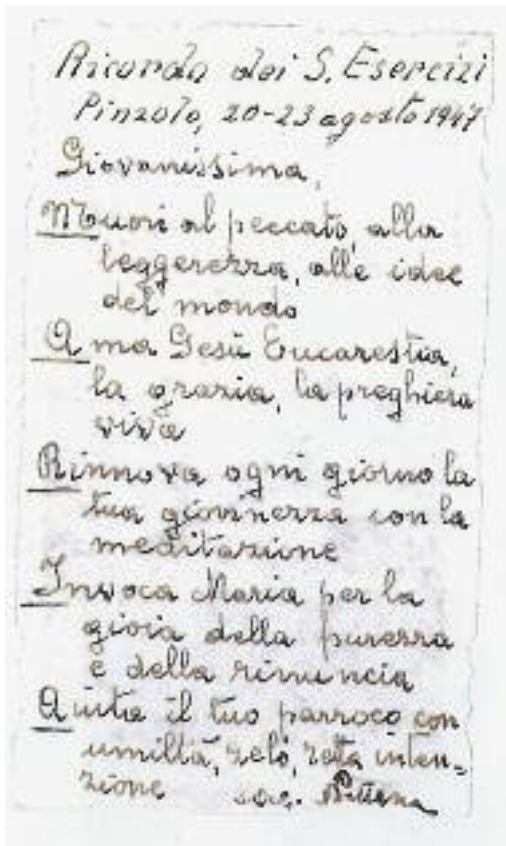 Ricordo dei S. Esercizi
Pinzolo, 20-23 agosto 1947
Giovanissima,
Muori al peccato, alla
leggerezza, alle idee
del mondo
Ama Gesù Eucarestia,
la grazia, la preghiera
viva
Rinnova ogni giorno la
tua giovinezza con la
meditazione
Invoca Maria per la
gioia della purezza
e della rinuncia
Aiuta il tuo parroco con
umiltà, zelo, retta inten=
zione sac.